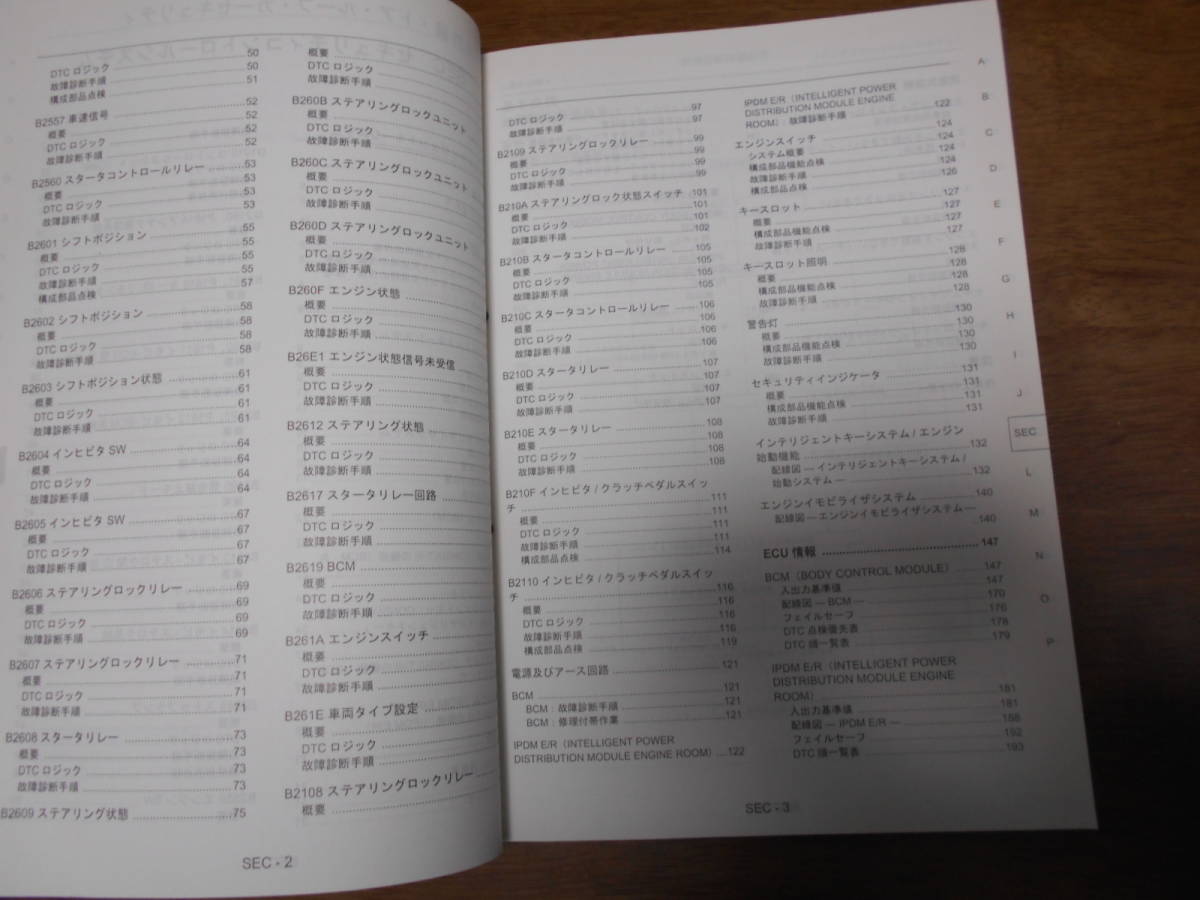 50
DTC ロジック 50
故障診断手順 51
構成部品点検
B2557 車速信号 52
概要 52
DTC ロジック 52
故障診断手順 52
B2560 スタータコントロールリレー 53
概要 53
DTC ロジック 53
故障診断手順 53
B2601 シフトポジション 55
概要 55
DTC ロジック 55
故障診断手順 55
構成部品点検 57
B2602 シフトポジション 58
概要 58
DTC ロジック 58
故障診断手順 58
B2603 シフトポジション状態 61
概要 61
DTC ロジック 61
故障診断手順 61
B2604 インヒビタ SW 64
概要 64
DTC ロジック 64
故障診断手順 64
B2605 インヒビタ SW 67
概要 67
DTC ロジック 67
故障診断手順 67
B2606 ステアリングロックリレー 69
概要 69
DTC ロジック 69
故障診断手順 69
B2607 ステアリングロックリレー 71
概要 71
DTC ロジック 71
故障診断手順 71
B2608 スタータリレー 73
概要 73
DTC ロジック 73
故障診断手順 73
B2609 ステアリング状態 75
概要
DTC ロジック
故障診断手順
B260B ステアリングロックユニット
概要
DTC ロジック
故障診断手順
B260C ステアリングロックユニット
概要
DTC ロジック
故障診断手順
B260D ステアリングロックユニット
概要
DTC ロジック
故障診断手順
B260F エンジン状態
概要
DTC ロジック
故障診断手順
B26E1 エンジン状態信号未受信
概要
DTC ロジック
故障診断手順
B2612 ステアリング状態
概要
DTC ロジック
故障診断手順
B2617 スタータリレー回路
概要
DTC ロジック
故障診断手順
B2619 BCM
概要
DTC ロジック
故障診断手順
B261A エンジンスイッチ
概要
DTC ロジック
故障診断手順
B261E 車両タイプ設定
概要
DTC ロジック
故障診断手順
B2108 ステアリングロックリレー
概要
SEC - 2
DTC ロジック 97
故障診断手順 97
B2109 ステアリングロックリレー 99
概要 99
DTC ロジック 99
故障診断手順 99
B210A ステアリングロック状態スイッチ 101
概要 101
DTC ロジック 101
故障診断手順 102
B210B スタータコントロールリレー 105
概要 105
DTC ロジック 105
故障診断手順 105
B210C スタータコントロールリレー 106
概要 106
DTC ロジック 106
故障診断手順 106
B210D スタータリレー 107
概要 107
DTC ロジック 107
故障診断手順 107
B210E スタータリレー 108
概要 108
DTC ロジック 108
故障診断手順 108
B210F インヒビタ / クラッチペダルスイッ
チ 111
概要 111
DTC ロジック 111
故障診断手順 111
構成部品点検 114
B2110 インヒビタ / クラッチペダルスイッ
チ 116
概要 116
DTC ロジック 116
故障診断手順 116
構成部品点検 119
電源及びアース回路 121
BCM 121
BCM : 故障診断手順 121
BCM : 修理付帯作業 121
IPDM E/R (INTELLIGENT POWER
DISTRIBUTION MODULE ENGINE ROOM) 122
IPDM E/R (INTELLIGENT POWER
DISTRIBUTION MODULE ENGINE
ROOM) : 故障診断手順 122
エンジンスイッチ 124
システム概要 124
構成部品機能点検 124
故障診断手順 124
構成部品点検 126
キースロット 127
概要 127
構成部品機能点検 127
故障診断手順 127
キースロット照明 128
概要 128
構成部品機能点検 128
故障診断手順 128
警告灯 130
概要 130
構成部品機能点検 130
故障診断手順 130
セキュリティインジケータ 131
概要 131
構成部品機能点検 131
故障診断手順 131
インテリジェントキーシステム / エンジン
始動機能 132
配線図 ― インテリジェントキーシステム /
始動システム ― 132
エンジンイモビライザシステム 140
配線図 ― エンジンイモビライザシステム ―
140
ECU 情報 147
BCM (BODY CONTROL MODULE) 147
入出力基準値 147
配線図 ― BCM ― 170
フェイルセーフ 176
DTC 点検優先表 178
DTC 項一覧表 179
IPDM E/R (INTELLIGENT POWER
DISTRIBUTION MODULE ENGINE
ROOM) 181
入出力基準値 181
配線図 ― IPDM E/R ― 188
フェイルセーフ 192
DTC 項一覧表 193
SEC - 3
A
B
C
D
E
F
G
H
I
J
SEC
L
M
N
O
P